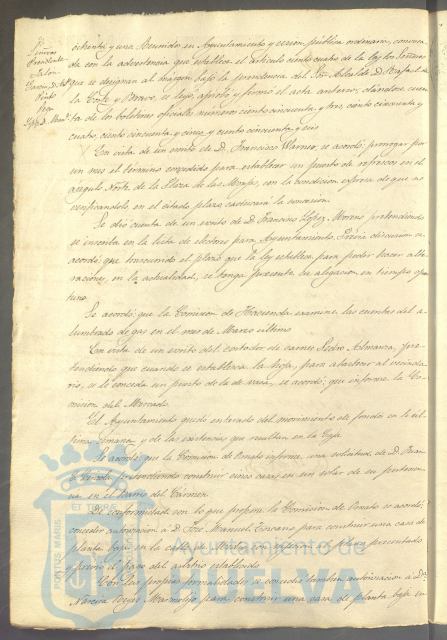 Señores
Presidente
ochenta y uno Reunidos en Ayuntamiento y sesion pública ordinaria, convoca
da con la advertencia que establece el artículo ciento cuatro de la ley los Señores
que se designan al margen bajo la presidencia del Sor. Alcalde D. Rafael de
la Corte y Bravo, se leyó, aprobó y firmó el acta anterior, dándose cuen
ta de los boletines oficiales números ciento cincuenta y tres, ciento cincuenta y
cuatro, ciento cincuenta y cinco y ciento cincuenta y seis
En vista de un escrito de D. Francisco se acordó: prorogar por
un mes el término concedido para establecer un puesto de refrescos en el
ángulo Norte de la Plaza de las Monjas, con la condicion espresa de que no
verificándolo en el citado plazo caducará la concesion.
Se dió cuenta de un escrito de D. Francisco Lopez Moreno pretendiendo
se incerita en la lista de electores para Ayuntamiento. Prévia discusion se
acordó: que trascurrido el plazo que la ley establece para poder hacer alte
raciones, en la actualidad, se tenga presente su alegacion en tiempo opor
tuno.
Se acordó: que la Comision de Hacienda examine las cuentas del a
lumbrado de gas en el mes de Marzo último
En vista de un escrito del cortador de carnes Pedro Almansa, pre
tendiendo que cuando se establezca la baja, para abastecer al vecinda
rio, se le conceda un puesto de la de vaca, se acordó: que informe la Co
mision del Mercado.
El Ayuntamiento quedó enterado del movimiento de fondos en la úl
tima semana y de las existencias que resultan en la Caja
Se acordó: que la Comision de Ornato informe, una solicitud de D. Juan
pretendiendo construir cinco casas en un solar de su pertenen
cia en el barrio del Cármen.
De conformidad con lo que propone la Comision de Ornato se acordó:
conceder autorizacion á D. José Manuel Toscano para construir una casa de
planta baja en la calle con informe al plano presentado
y prévio el pago del arbitrio establecido.
Con las propias formalidades se concedió tambien autorizacion á D.ª
Narcisa Reyes Marmolejo para construir una casa de planta baja en
PORTUS MARIS ET TERRAE
Ayuntamiento de
HUELVA